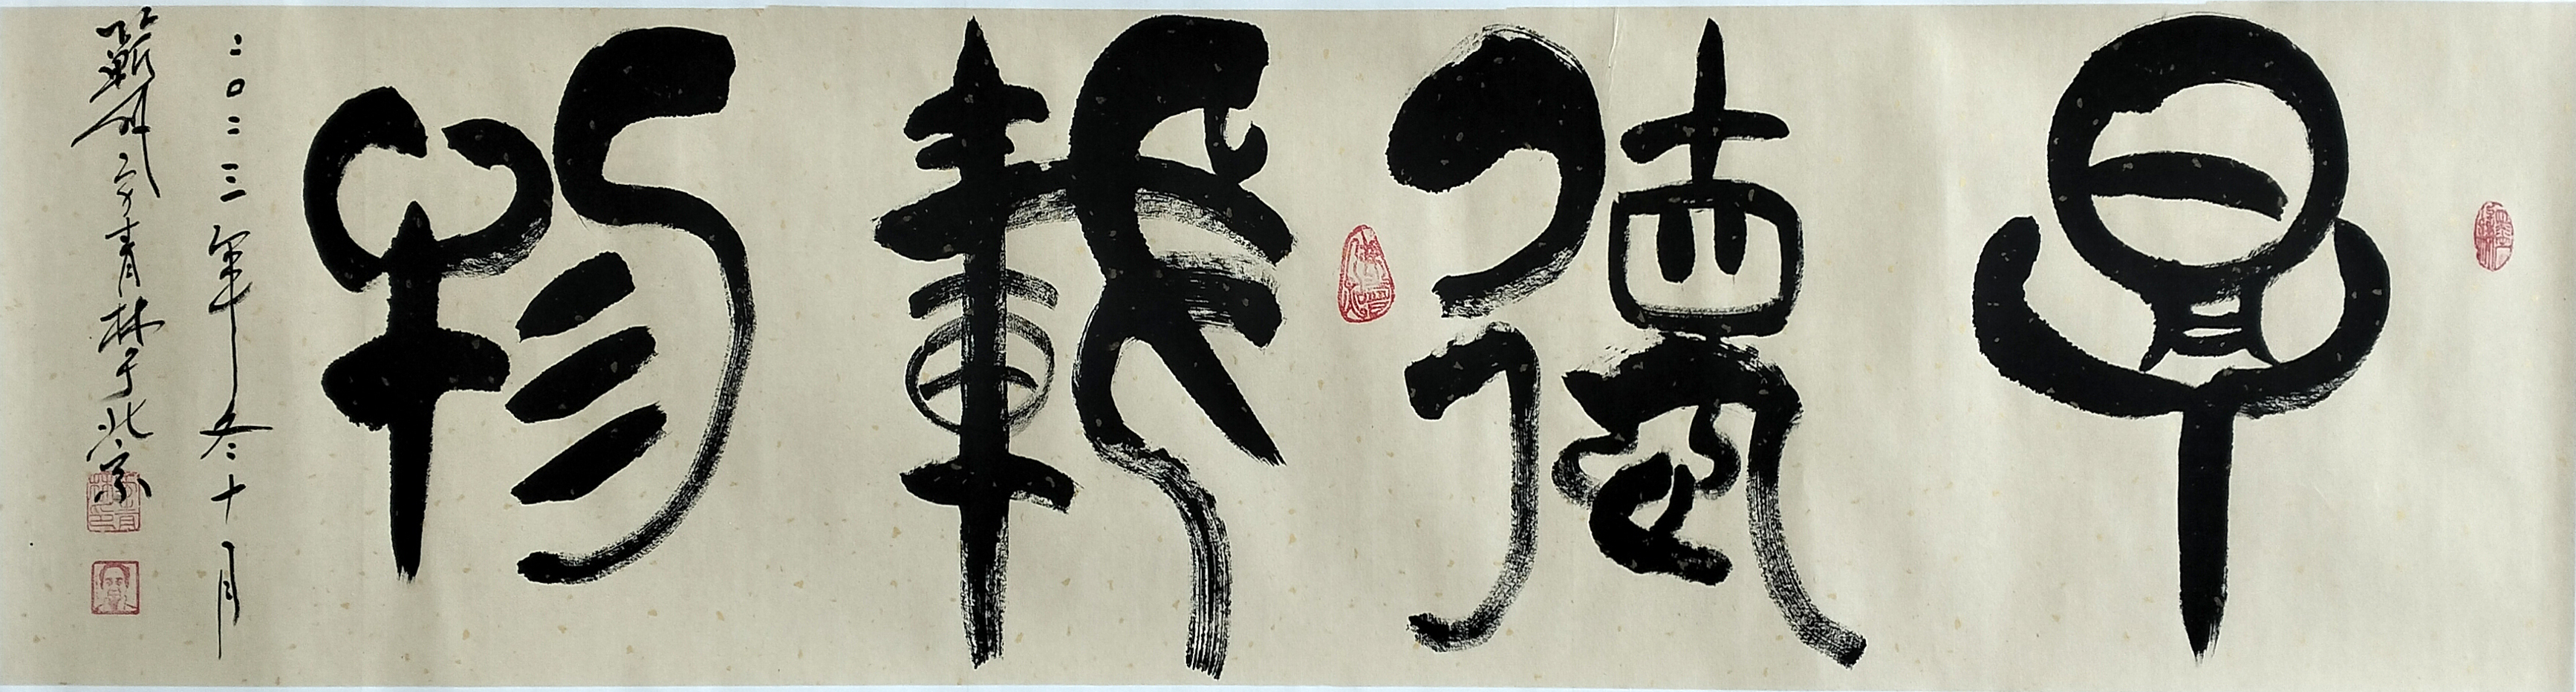 厚德載物
二〇二三年冬十月
青林于北京